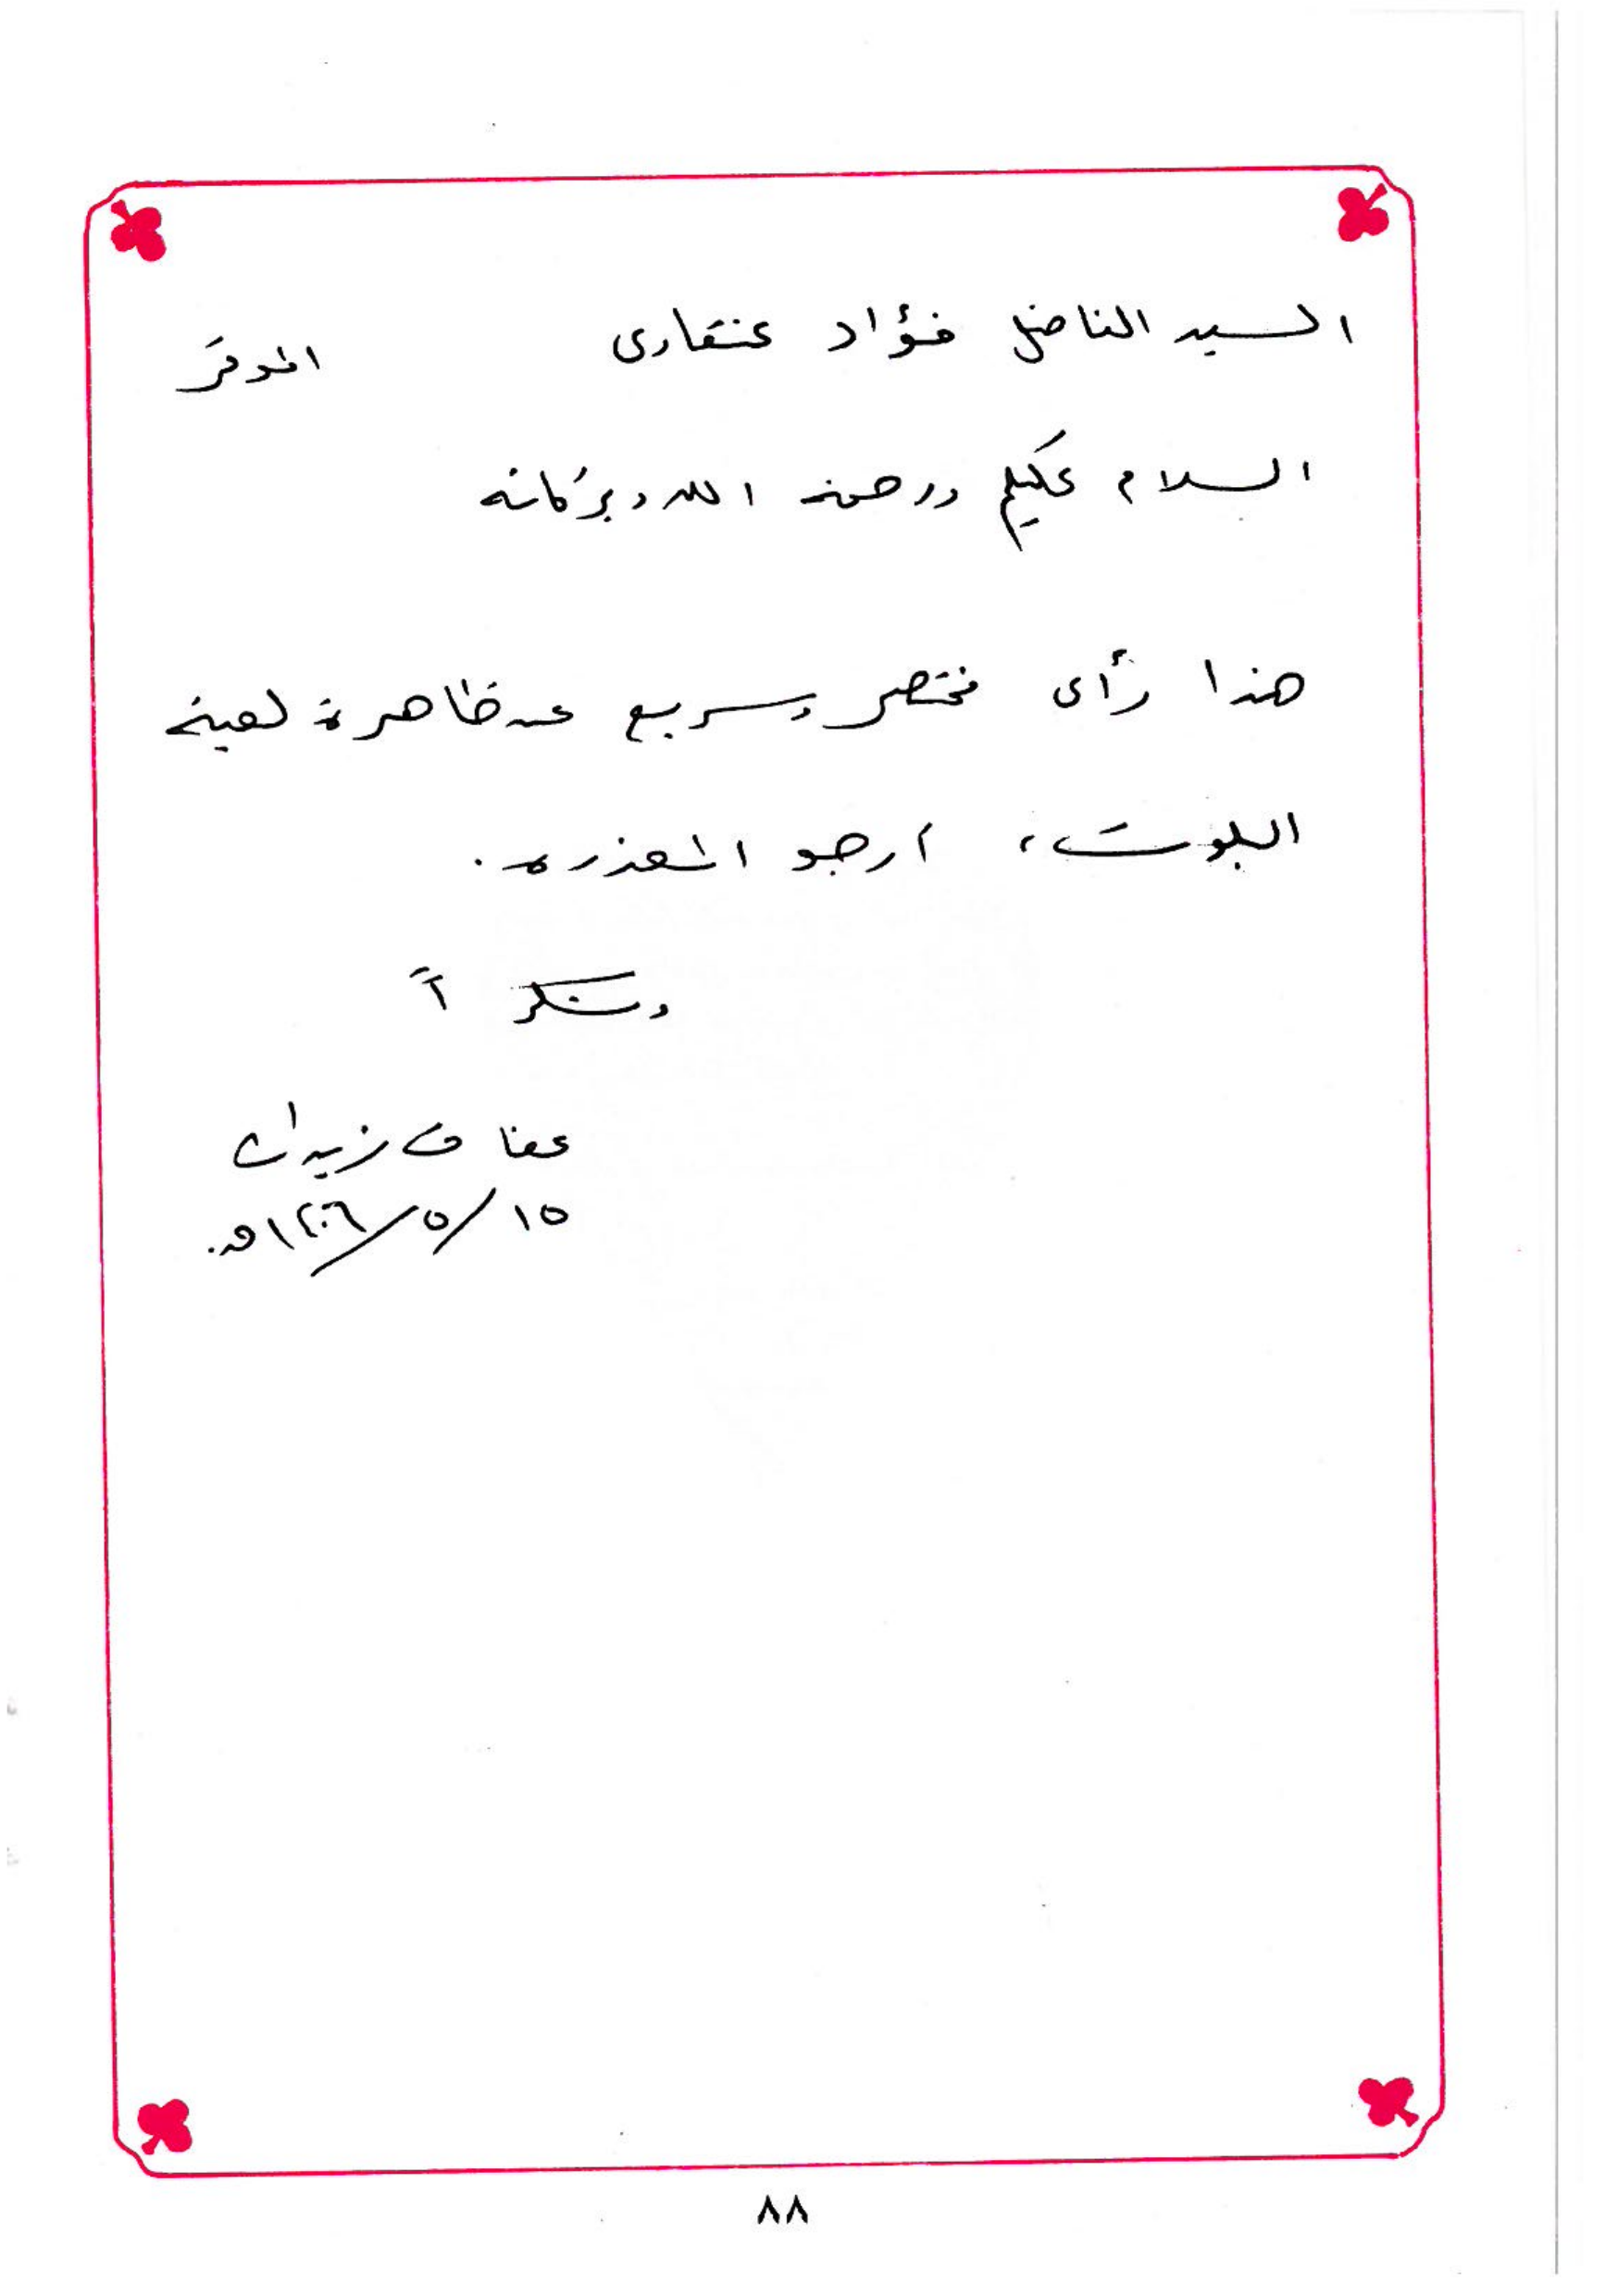 السيد الفاضل فؤاد عنقاوى الموقر
السلام عليكم ورحمة الله وبركاته
هذا رأى مختصر وسريع عن ظاهرة لعبة
البلوت، أرجو المعذرة.
وشكراً
عفاف زيدان
١٥/٥/١٤٠٦هـ.
٨٨